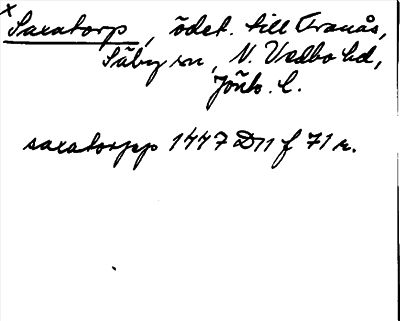 x
Saxatorp, ödet. till Tranås,
Säby sn, N. Vedbo hd,
Jönk. l.
saxatorpp 1447 D11 f 71 r.